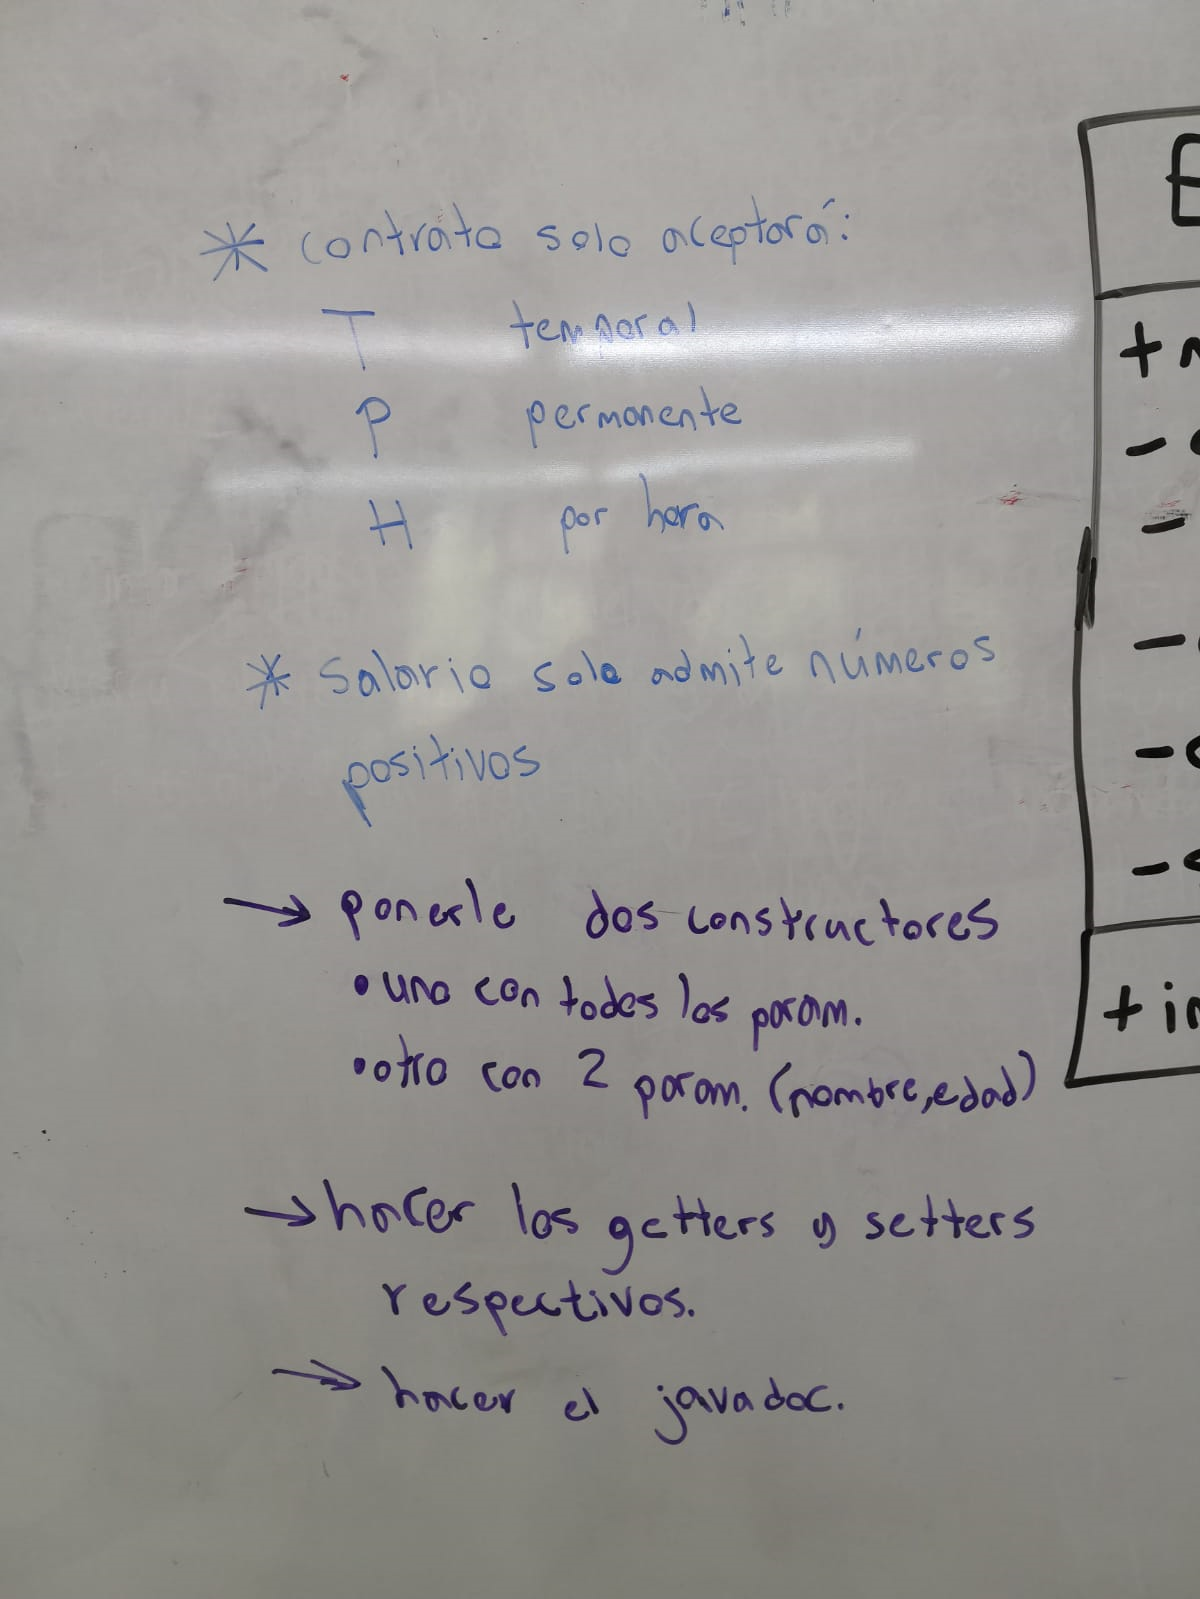 * contrato solo aceptará:
T temporal
P permanente
H por hora
* Salario solo admite números
positivos
→ ponerle dos constructores
• uno con todos los param.
• otro con 2 param. (nombre, edad)
→ hacer los getters y setters
respectivos.
→ hacer el javadoc.
E
+
-
-
-
-
-
+ in